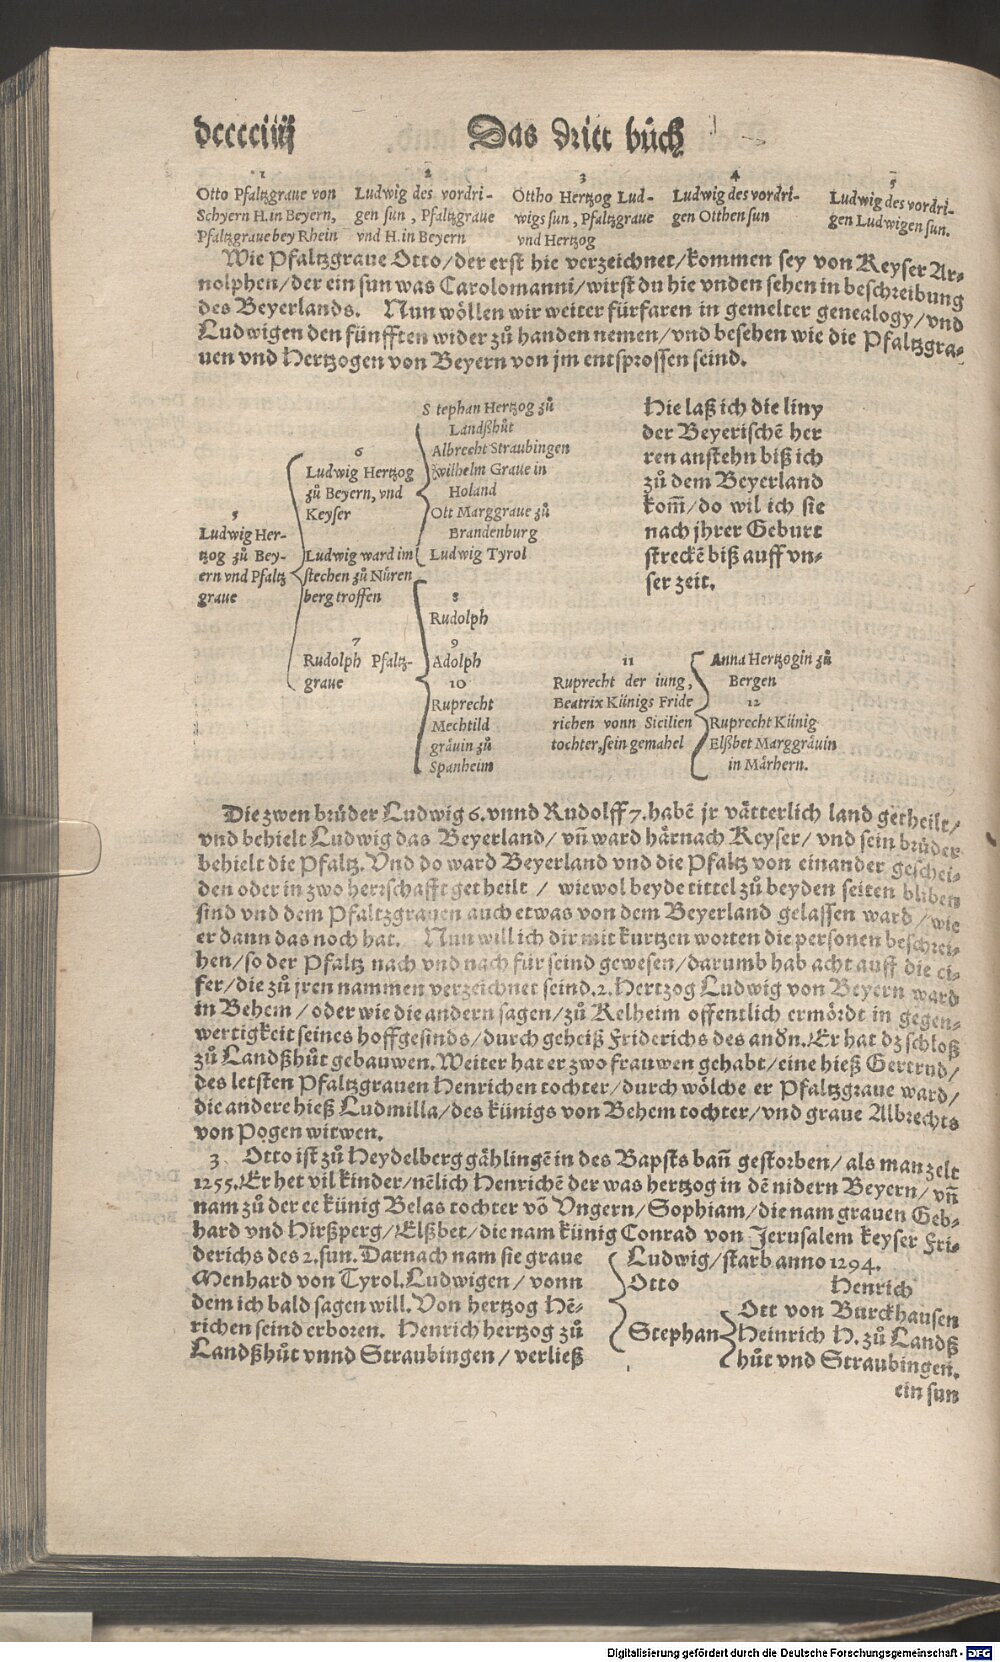 dcccciiij
Das dritt bůch
1
Otto Pfaltzgraue von
Schyern H. in Beyern,
Pfaltzgraue bey Rhein
2
Ludwig des vordri-
gen sun, Pfaltzgraue
vnd H. in Beyern
3
Ottho Hertzog Lud-
wigs sun, Pfaltzgraue
vnd Hertzog
4
Ludwig des vordri-
gen Otthen sun
5
Ludwig des vordri-
gen Ludwigen sun.
Wie Pfaltzgraue Otto/der erst hie verzeichnet/kommen sey von Keyser Ar-
nolphen/der ein sun was Carolomanni/wirst du hie vnden sehen in beschreibung
des Beyerlands. Nun wöllen wir weiter fürfaren in gemelter genealogy/vnd
Ludwigen den fünfften wider zů handen nemen/vnd besehen wie die Pfaltzgra-
uen vnd Hertzogen von Beyern von jm entsprossen seind.
5
Ludwig Her-
tzog zů Bey-
ern vnd Pfaltz
graue
6
Ludwig Hertzog
zů Beyern, vnd
Keyser
Ludwig ward im
stechen zů Nüren
berg troffen
7
Rudolph Pfaltz-
graue
Stephan Hertzog zů
Landßhůt
Albrecht Straubingen
Wilhelm Graue in
Holand
Ott Marggraue zů
Brandenburg
Ludwig Tyrol
8
Rudolph
9
Adolph
10
Ruprecht
Mechtild
gräuin zů
Spanheim
11
Ruprecht der iung,
Beatrix Künigs Fride
richen vonn Sicilien
tochter, sein gemahel
Anna Hertzogin zů
Bergen
12
Ruprecht Künig
Elßbet Marggräuin
in Märhern.
Hie laß ich die liny
der Beyerischē her
ren anstehn biß ich
zů dem Beyerland
kom̄/do wil ich sie
nach jhrer Geburt
streckē biß auff vn-
ser zeit.
Die zwen brüder Ludwig 6. vnnd Rudolff 7. habē jr vätterlich land getheilt/
vnd behielt Ludwig das Beyerland/ vn̄ ward härnach Keyser/ vnd sein brůder
behielt die Pfaltz. Vnd do ward Beyerland vnd die Pfaltz von einander geschei-
den oder in zwo herrschafft getheilt / wiewol beyde tittel zů beyden seiten bliben
sind vnd dem Pfaltzgrauen auch etwas von dem Beyerland gelassen ward /wie
er dann das noch hat. Nun will ich dir mit kurtzen worten die personen beschrei-
ben/so der Pfaltz nach vnd nach für seind gewesen/darumb hab acht auff die ci-
fer/die zů jren nammen verzeichnet seind. 2. Hertzog Ludwig von Beyern ward
in Behem /oder wie die andern sagen/zů Kelheim offentlich ermördt in gegen-
wertigkeit seines hoffgesinds/durch geheiß Friderichs des andn. Er hat dz schloß
zů Landßhůt gebauwen. Weiter hat er zwo frauwen gehabt/eine hieß Gertrud/
des letsten Pfaltzgrauen Henrichen tochter/durch wölche er Pfaltzgraue ward/
die andere hieß Ludmilla/des künigs von Behem tochter/vnd graue Albrechts
von Pogen witwen.
3 Otto ist zů Heydelberg gählingē in des Bapsts ban̄ gestorben/ als man zelt
1255. Er het vil kinder/nēlich Henrichē der was hertzog in dē nidern Beyern/ vn̄
nam zů der ee künig Belas tochter vō Vngern/Sophiam/die nam grauen Geb-
hard vnd Hirßperg/Elßbet/die nam künig Conrad von Jerusalem keyser Fri-
derichs des 2. sun. Darnach nam sie graue
Menhard von Tyrol. Ludwigen/ vonn
dem ich bald sagen will. Von hertzog Hē-
richen seind erboren. Henrich hertzog zů
Landßhůt vnnd Straubingen/ verließ
Ludwig/starb anno 1294.
Otto Henrich
Stephan
Ott von Burckhausen
Heinrich H. zů Landß
hůt vnd Straubingen.
ein sun
Digitalisierung gefördert durch die Deutsche Forschungsgemeinschaft - DFG